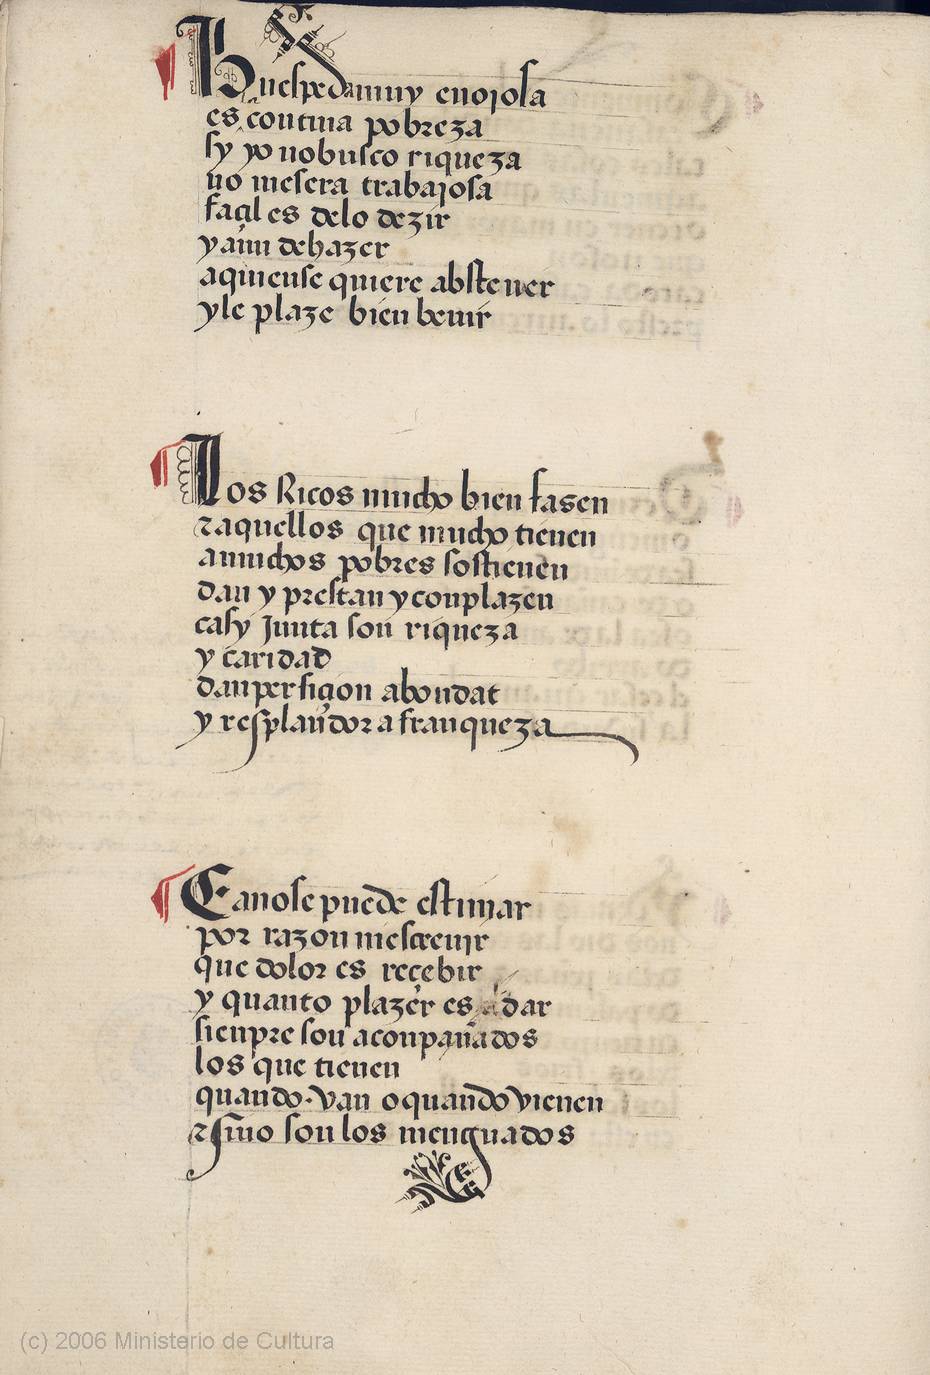 Huespeda muy enojosa
es contina pobreza
sy yo no busco riqueza
no me sera trabajosa
facil es delo dezir
y aun de hazer
a quien se quiere abstener
y le plaze bien beuir
Los Ricos mucho bien fasen
z aquellos que mucho tienen
a muchos pobres sostienen
dan y prestan y conplazen
casy junta son riqueza
y caridad
dan perfiçion a bondat
y resplandor a franqueza
Ea no se puede estimar
por razon nin escreuir
que dolor es recebir
y quanto plazer es a dar
sienpre son aconpañados
los que tienen
quando van o quando vienen
z sino son los menguados
(c) 2006 Ministerio de Cultura